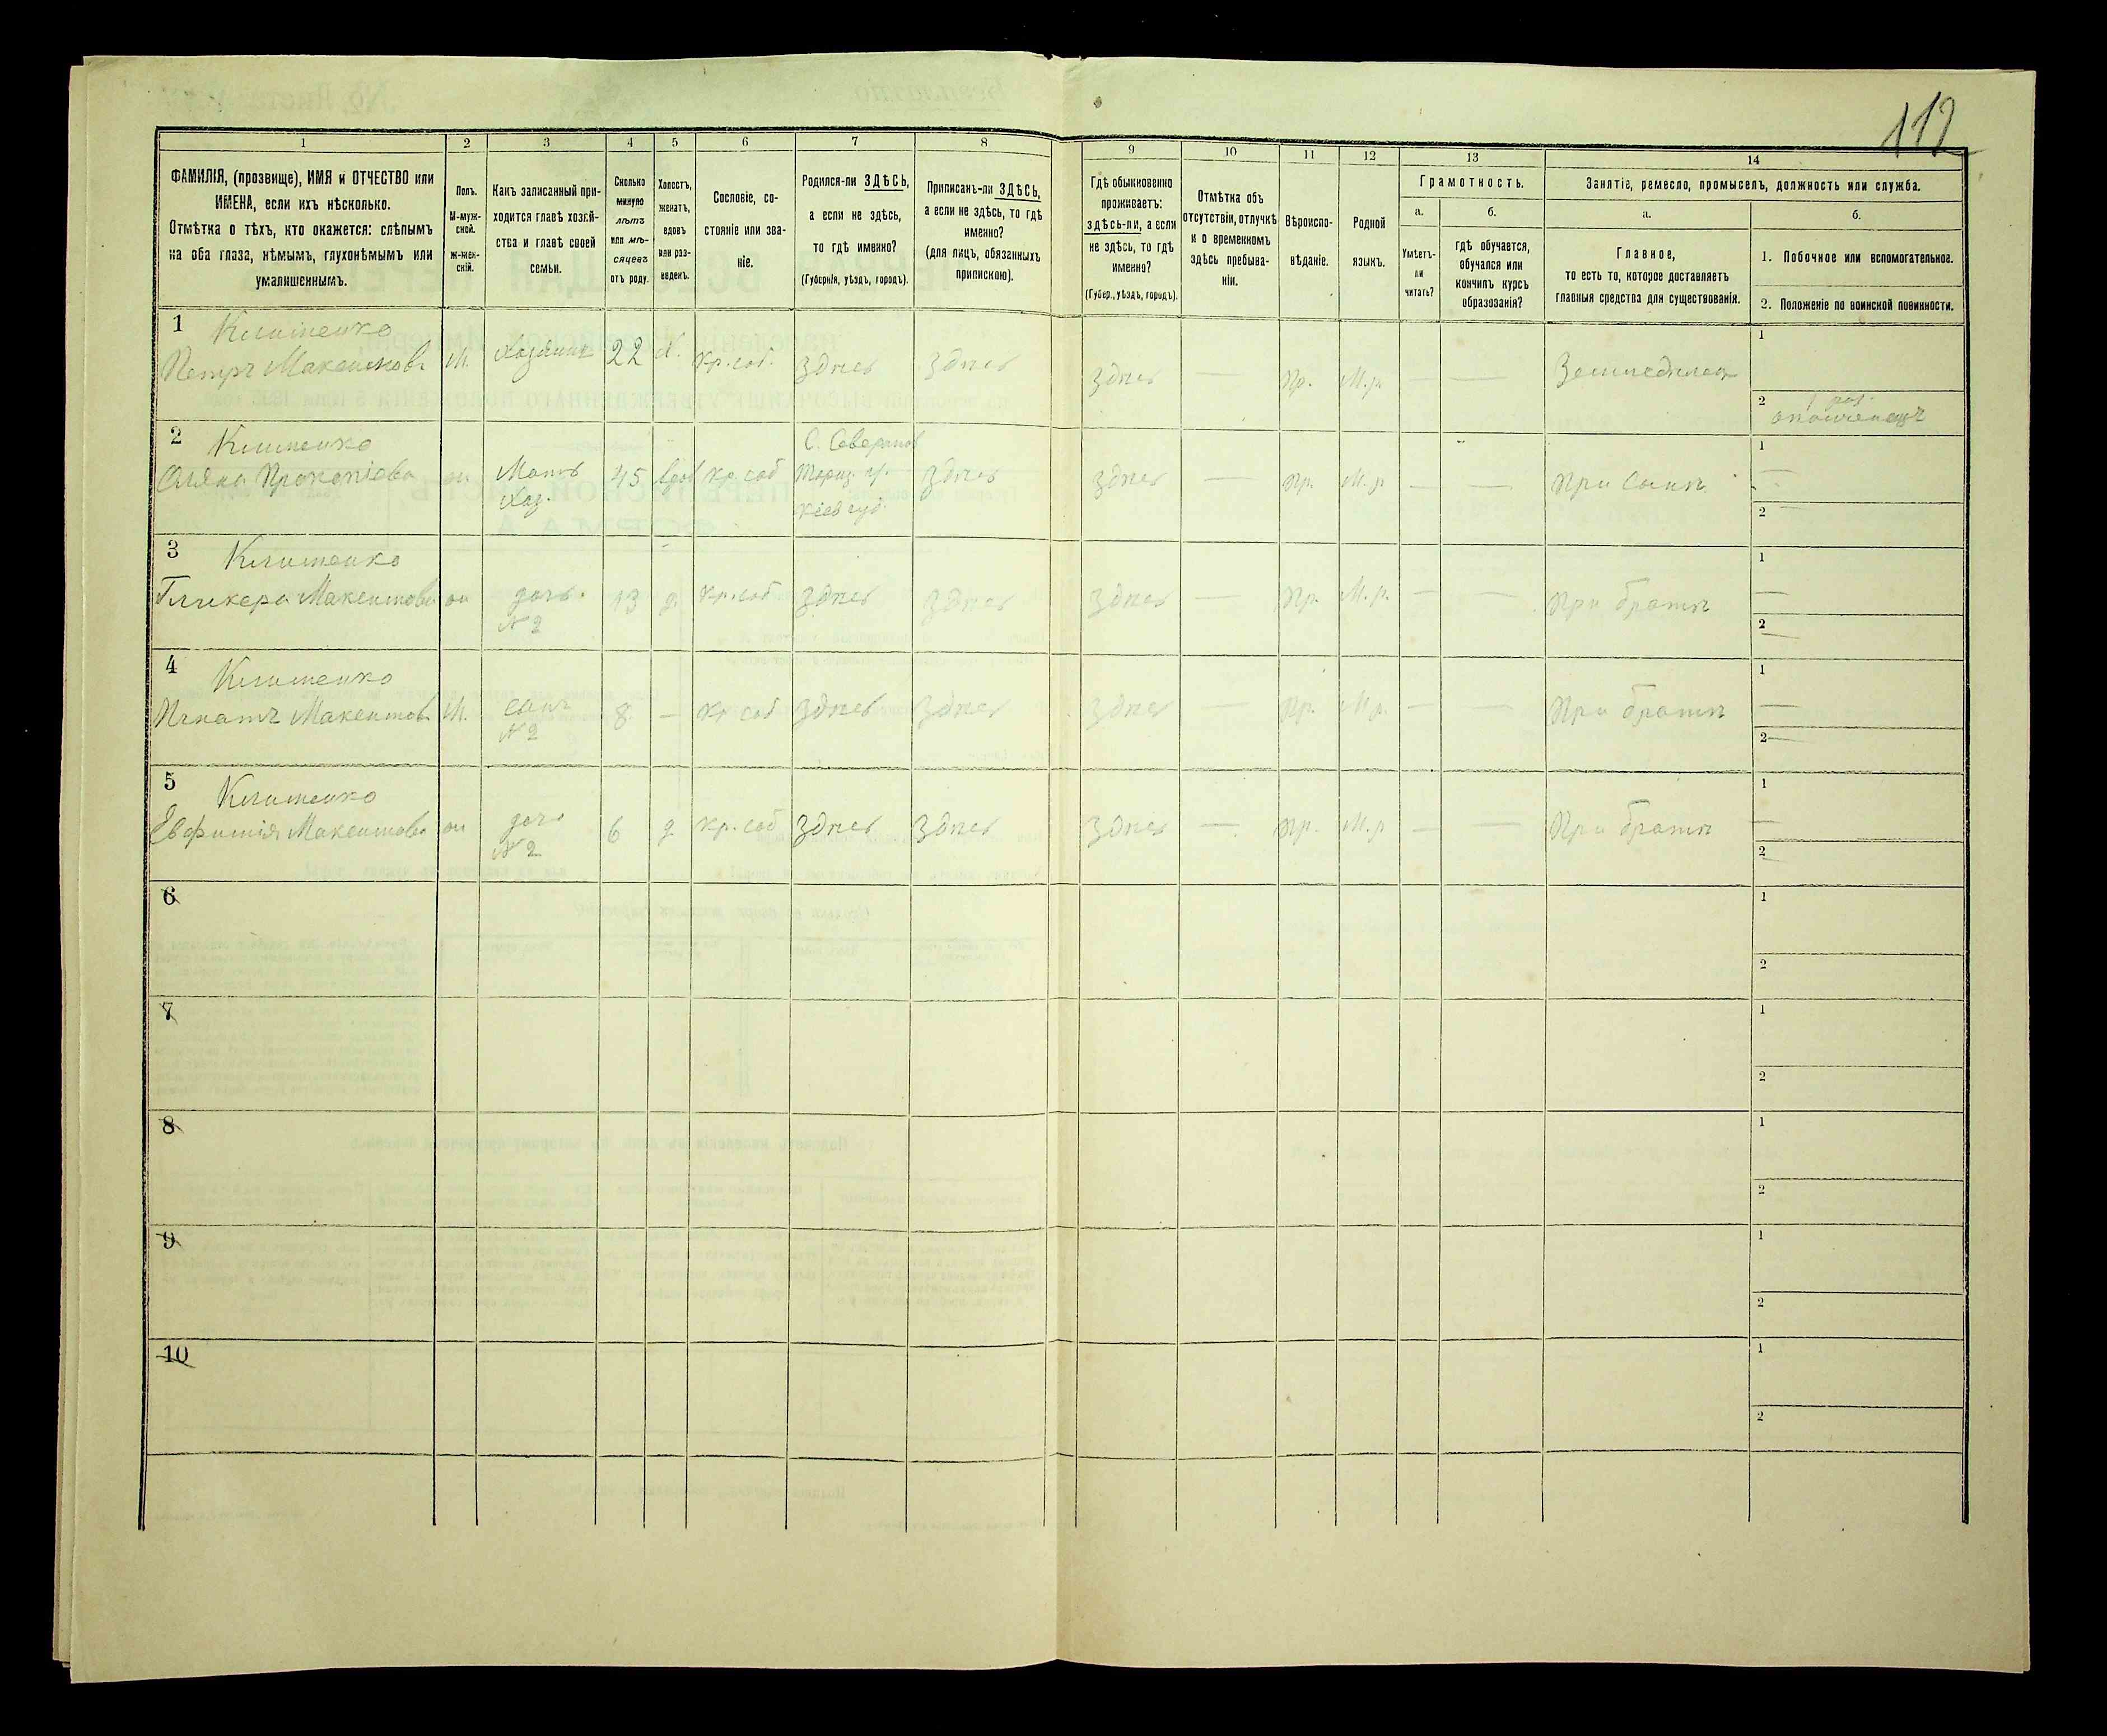 112
1
2
3
4
5
6
7
8
9
10
11
12
13
14
ФАМИЛІЯ, (прозвище), ИМЯ и ОТЧЕСТВО или
ИМЕНА, если ихъ нѣсколько.
Отмѣтка о тѣхъ, кто окажется: слѣпымъ
на оба глаза, нѣмымъ, глухонѣмымъ или
умалишеннымъ.
Полъ.
М-муж-
ской.
Ж-жен-
скій.
Какъ записанный при-
ходится главѣ хозяй-
ства и главѣ своей
семьи.
Сколько
минуло
лѣтъ
или мѣ-
сяцевъ
отъ роду.
Холостъ,
женатъ,
вдовъ
или раз-
веденъ.
Сословіе, со-
стояніе или зва-
ніе.
Родился-ли ЗДѢСЬ,
а если не здѣсь,
то гдѣ именно?
(Губернія, уѣздъ, городъ).
Приписанъ-ли ЗДѢСЬ,
а если не здѣсь, то гдѣ
именно?
(для лицъ, обязанныхъ
припискою).
Гдѣ обыкновенно
проживаетъ:
здѣсь-ли, а если
не здѣсь, то гдѣ
именно?
(Губер., уѣздъ, городъ).
Отмѣтка объ
отсутствіи, отлучкѣ
и о временномъ
здѣсь пребыва-
ніи.
Вѣроиспо-
вѣданіе.
Родной
языкъ.
Грамотность.
а.
Умѣетъ-
ли
читать?
б.
гдѣ обучается,
обучался или
кончилъ курсъ
образованія?
Занятіе, ремесло, промыселъ, должность или служба.
а.
Главное,
то есть то, которое доставляетъ
главныя средства для существованія.
б.
1. Побочное или вспомогательное.
2. Положеніе по воинской повинности.
1 Клименко
Петръ Максимовъ М. Хозяинъ 22 Х. кр. соб. Здѣсь Здѣсь Здѣсь — Пр. М.р. — — Земледѣлецъ
1
2 1 раз.
ополченецъ
2 Клименко
Прокопіева ж Мать
Хоз. 45 вдов кр соб
Кіев губ.
Здѣсь Здѣсь — Пр. М.р — — При сынѣ
1 —
2 —
3 Клименко
Гликера Максимова ж дочь
№ 2 13 д. кр. соб Здѣсь Здѣсь Здѣсь — Пр. М.р. — — При братѣ
1 —
2 —
4 Клименко
Игнатъ Максимов М. сынъ
№ 2 8 — кр соб Здѣсь Здѣсь Здѣсь — Пр. М.р. — — При братѣ
1 —
2 —
5 Клименко
Евфимія Максимова ж дочь
№ 2 6 д кр. соб Здѣсь Здѣсь Здѣсь — Пр. М.р — — При братѣ
1 —
2 —
6
1
2
7
1
2
8
1
2
9
1
2
10
1
2